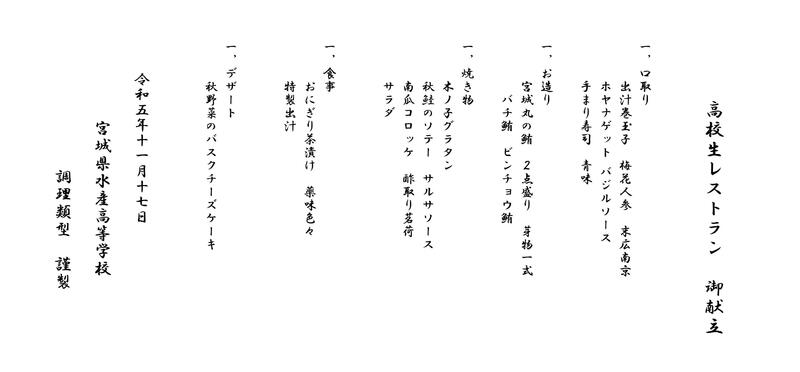 高校生レストラン　御献立
一、口取り
出汁巻玉子　梅花人参　末広南京
ホヤナゲット　バジルソース
手まり寿司　青味
一、お造り
宮城丸の鮪　２点盛り　芽物一式
バチ鮪　ビンチョウ鮪
一、焼き物
木ノ子グラタン
秋鮭のソテー　サルサソース
南瓜コロッケ　酢取り茗荷
サラダ
一、食事
おにぎり茶漬け　薬味色々
特製出汁
一、デザート
秋野菜のバスクチーズケーキ
令和五年十一月十七日
宮城県水産高等学校
調理類型　謹製